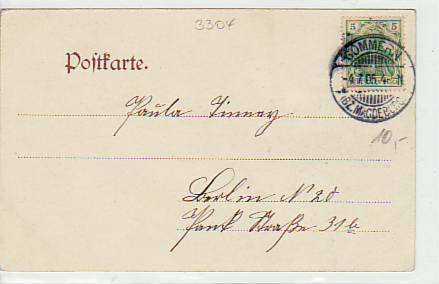 3304
5 5
Postkarte.
GOMMERN
-4.7.05.4-
(BZ. MAGDEBURG)
Paula
10,-
Berlin N 20
Pank Straße 31b